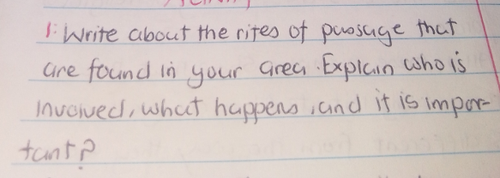 1. Write about the rites of passage that
are found in your area. Explain who is
involved, what happens, and it is impor-
tant?